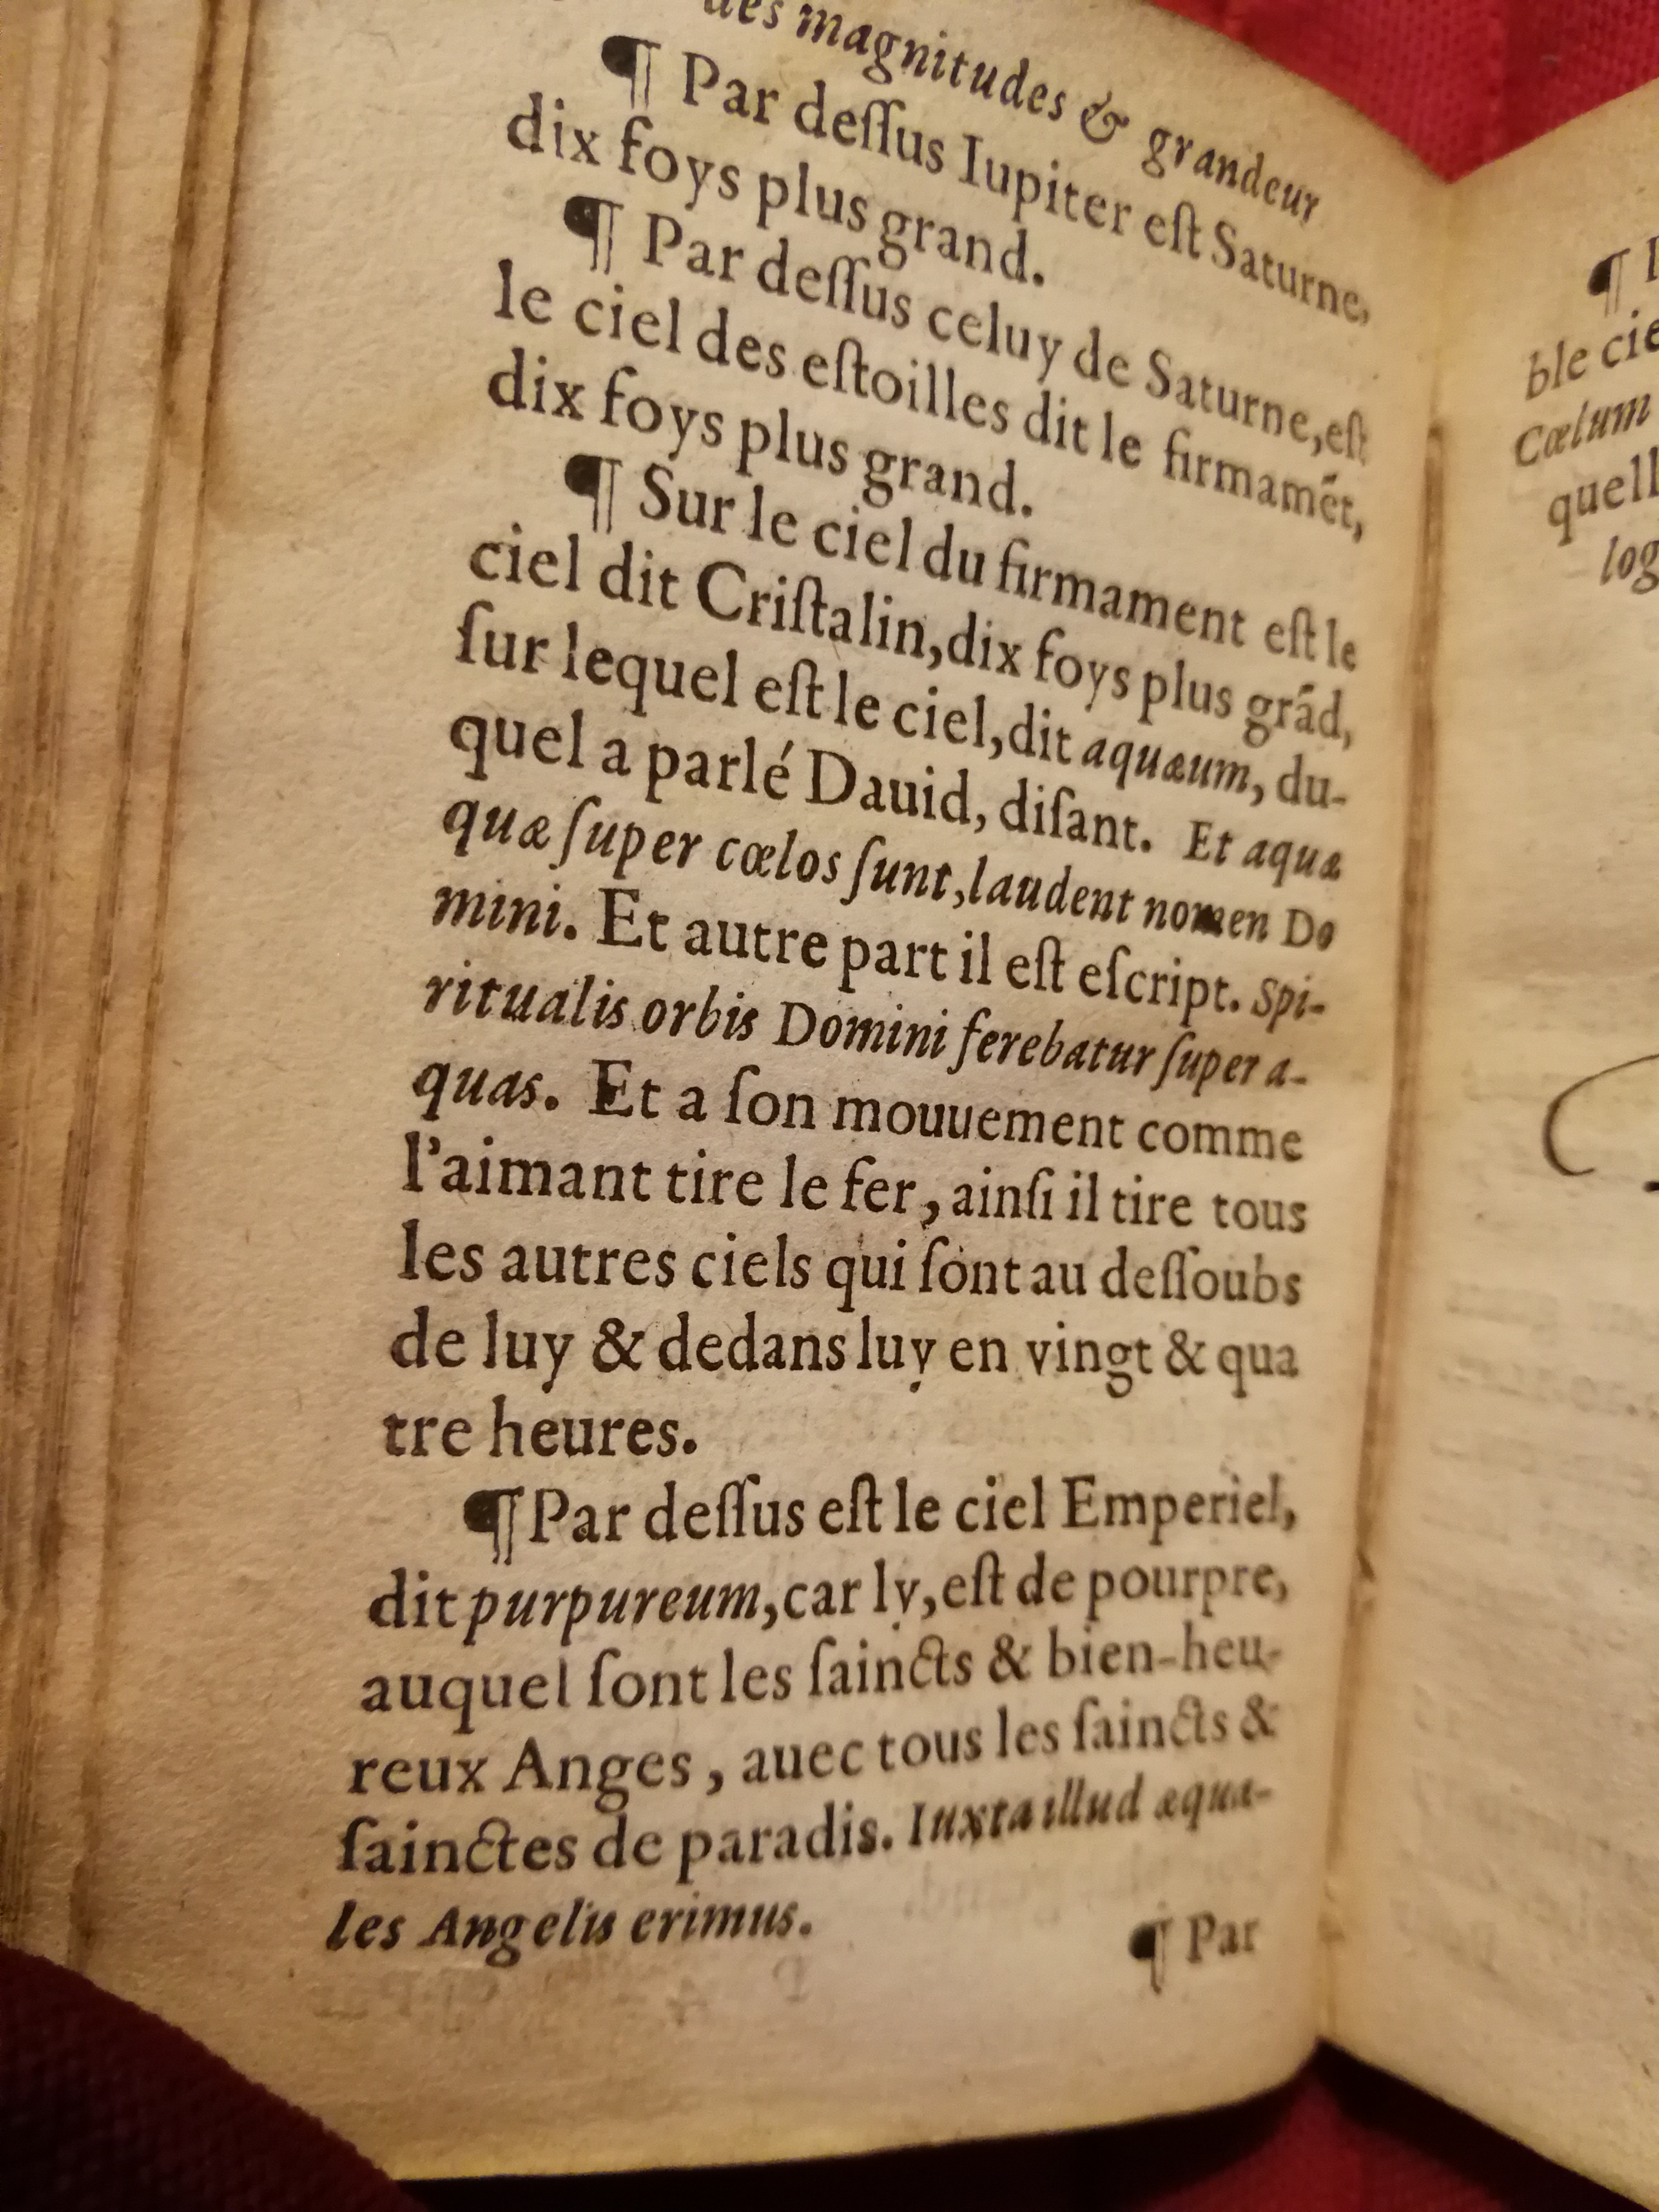 des magnitudes & grandeur
¶ Par deſſus Iupiter eſt Saturne,
dix foys plus grand.
¶ Par deſſus celuy de Saturne, eſt
le ciel des eſtoilles dit le firmamẽt,
dix foys plus grand.
¶ Sur le ciel du firmament eſt le
ciel dit Criſtalin, dix foys plus grãd,
ſur lequel eſt le ciel, dit aquæum, du-
quel a parlé Dauid, diſant. Et aquæ
quæ ſuper cœlos ſunt, laudent nomen Do
mini. Et autre part il eſt eſcript. Spi-
ritualis orbis Domini ferebatur ſuper a-
quas. Et a ſon mouuement comme
l'aimant tire le fer, ainſi il tire tous
les autres ciels qui ſont au deſſoubs
de luy & dedans luy en vingt & qua
tre heures.
¶ Par deſſus eſt le ciel Emperiel,
dit purpureum, car ly, eſt de pourpre,
auquel ſont les ſaincts & bien-heu-
reux Anges, auec tous les ſaincts &
ſainctes de paradis. Iuxta illud æqua-
les Angelis erimus.
¶ Par
¶
ble cie
Cœlum
quell
log